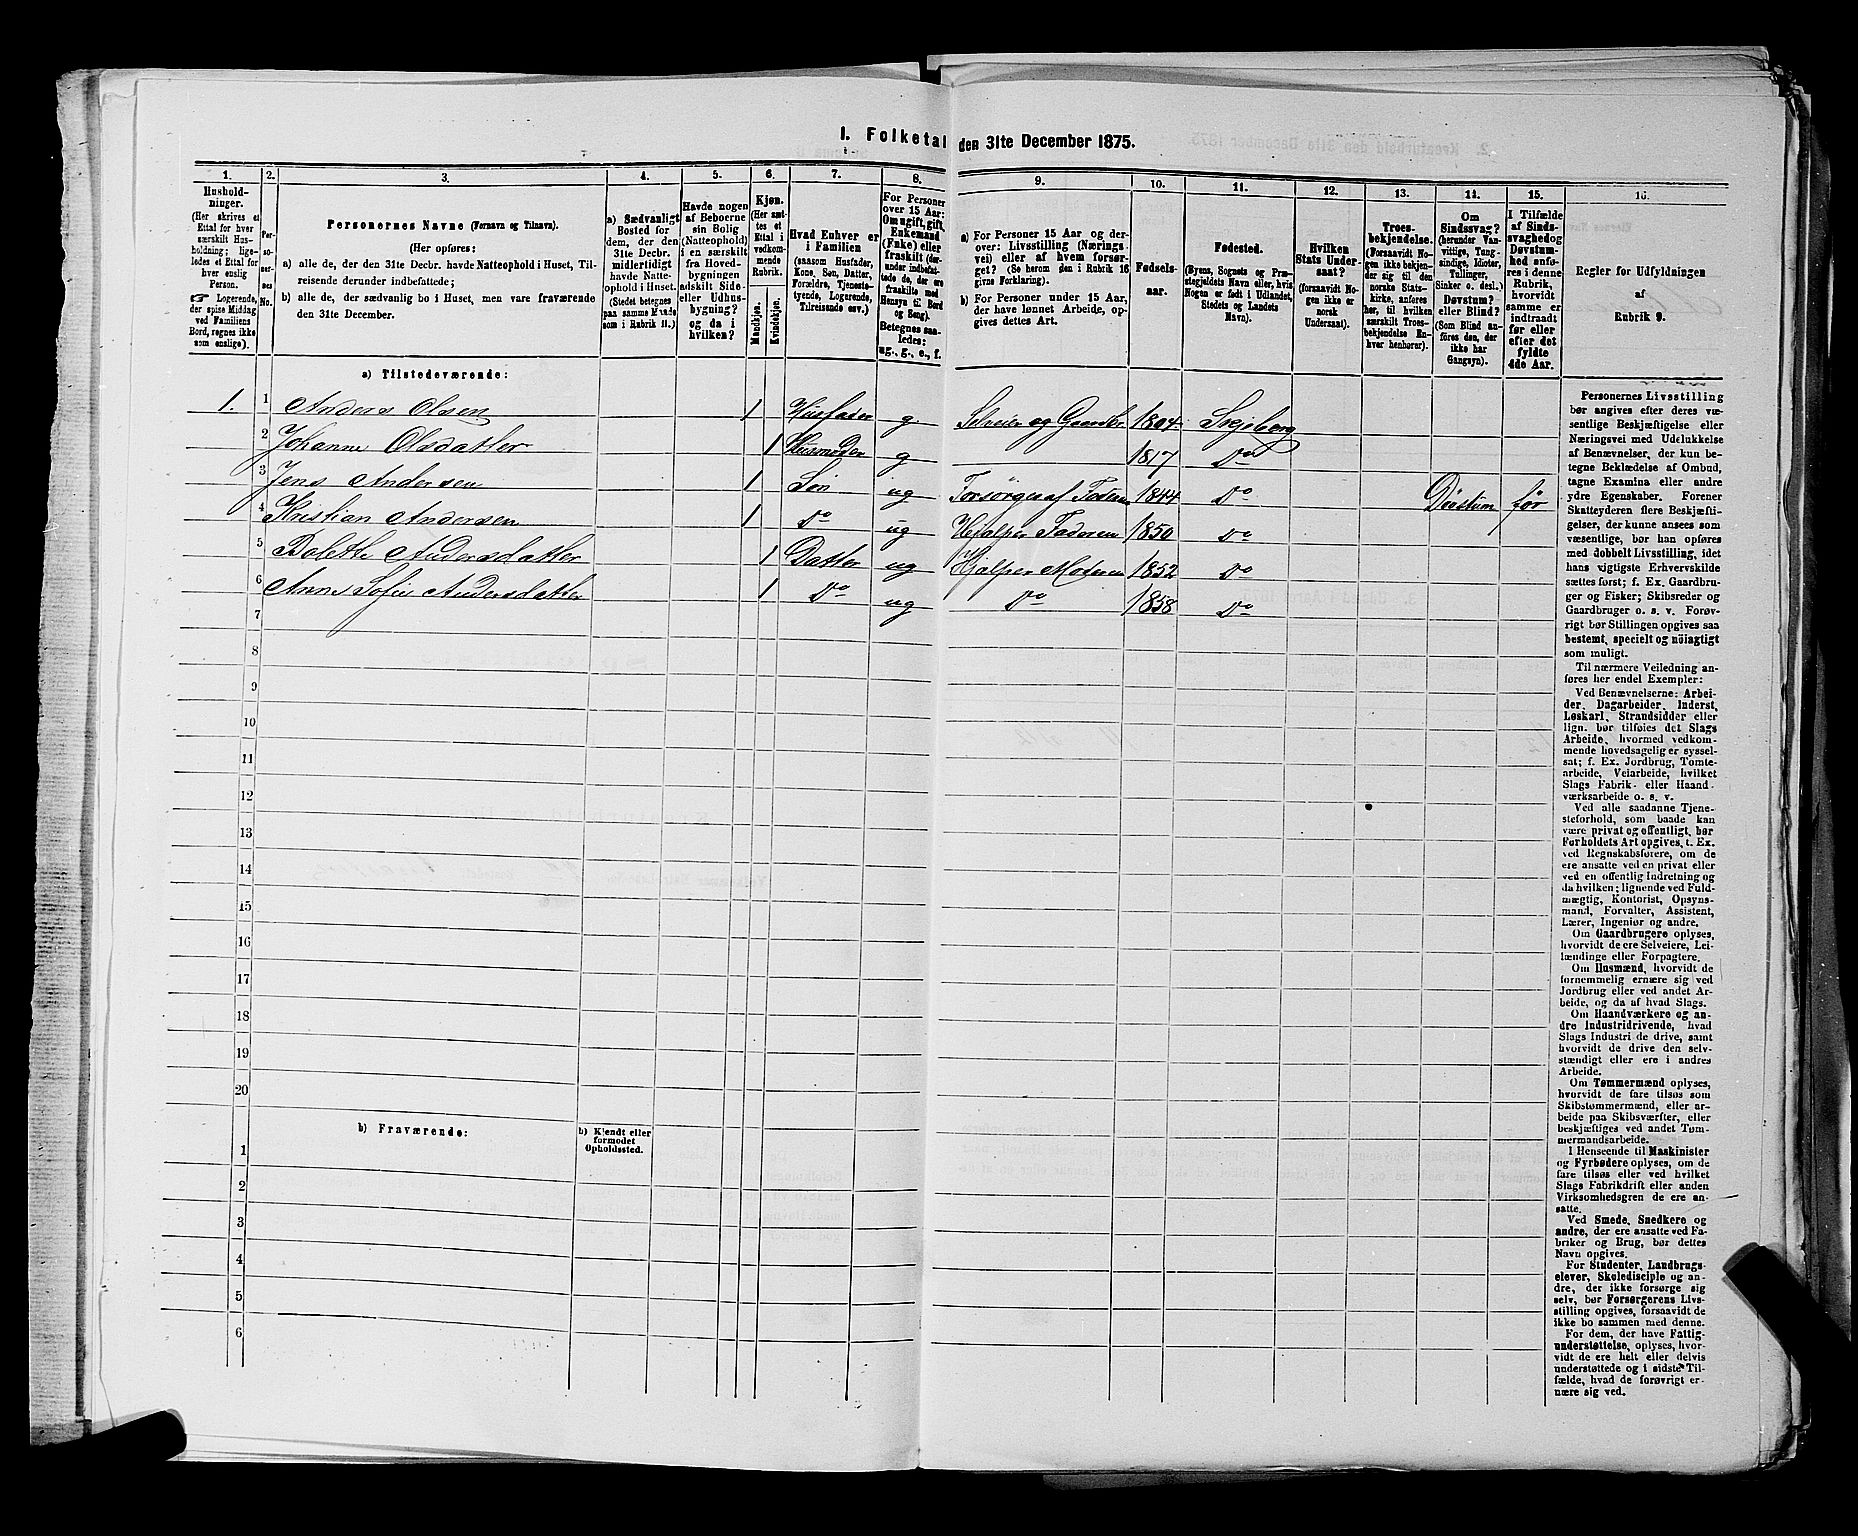 I. Folketal den 31te December 1875.
1. 2. 3. 4. 5. 6. 7. 8. 9. 10. 11. 12. 13. 14. 15. 16.
Hushold-
ninger.
(Her skrives et
Ettal for hver
særskilt Hus-
holdning; lige-
ledes et Ettal for
hver enslig
Person.
☞ Logerende,
der spise Middag
ved Familiens
Bord, regnes ikke
som enslige).
Per-
so-
ner-
nes
No.
Personernes Navne (Fornavn og Tilnavn).
(Her opføres:
a) alle de, der den 31te Decbr. havde Natteophold i Huset, Til-
reisende derunder indbefattede;
b) alle de, der sædvanlig bo i Huset, men vare fraværende
den 31te December.
a) Sædvanligt
Bosted for
dem, der den
31te Decbr.
midlertidigt
havde Natte-
ophold i Huset.
(Stedet betegnes
paa samme Maade
som i Rubrik 11.)
Havde nogen
af Beboerne
sin Bolig
(Natteophold)
i en særskilt
fra Hoved-
bygningen
adskilt Side-
eller Udhus-
bygning?
og da i
hvilken?
Kjøn.
(Her sæt-
tes et
Ettal i
vedkom-
mende
Rubrik.
Mandkjøn.
Kvindekjøn.
Hvad Enhver er
i Familien
(saasom Husfader,
Kone, Søn, Datter,
Forældre, Tjeneste-
tyende, Logerende,
Tilreisende osv.)
For Personer
over 15 Aar:
Om ugift, gift,
Enkemand
(Enke) eller
fraskilt (der-
under indbefat-
tede de, der ere
fraskilte med
Hensyn til Bord
og Seng).
Betegnes saa-
ledes:
ug., g., e., f.
a) For Personer 15 Aar og der-
over: Livsstilling (Nærings-
vei) eller af hvem forsør-
get? (Se herom den i Rubrik 16
givne Forklaring).
b) For Personer under 15 Aar,
der have lønnet Arbeide, op-
gives dettes Art.
Fødsels-
aar.
Fødested.
(Byens, Sognets og Præ-
stegjeldets Navn eller, hvis
Nogen er født i Udlandet,
Stedets og Landets
Navn).
Hvilken
Stats Under-
saat?
(forsaavidt No-
gen ikke er
norsk
Undersaat).
Troes-
bekjendelse.
(Forsaavidt No-
gen ikke bekjen-
der sig til den
norske Stats-
kirke, anføres
her, til hvilken
særskilt Troes-
bekjendelse En-
hver henhører).
Om
Sindssvag?
(herunder Van-
vittige, Tung-
sindige, Idioter,
Tullinger,
Sinker o. desl.)
Døvstum?
eller Blind?
(Som Blind an-
føres den, der
ikke har
Gangsyn).
I Tilfælde
af Sinds-
svaghed og
Døvstum-
hed anfø-
res i denne
Rubrik,
hvorvidt
samme er
indtraadt
før eller
efter det
fyldte
4de Aar.
Regler for Udfyldningen
af
Rubrik 9.
a) Tilstedeværende:
1. 1 Anders Olsen 1 Husfader g. Selveier og Gaardbr 1804
2 Johanne Olsdatter 1 Husmoder g 1817 Do
3 Jens Andersen 1 Søn ug Forsørges af Faderen 1844 Do Døvstum før
4 Kristian Andersen 1 Do ug Hjælper Faderen 1850 Do
5 Bolette Andersdatter 1 Datter ug Hjælper Moderen 1852 Do
6 Anne Sofie Andersdatter 1 Do ug Do 1858 Do
7
8
9
10
11
12
13
14
15
16
17
18
19
20
b) Fraværende:
b) Kjendt eller
formodet
Opholdssted.
1
2
3
4
5
6
Personernes Livsstilling
bør angives efter deres væ-
sentlige Beskjæftigelse eller
Næringsvei med Udelukkelse
af Benævnelser, der kun be-
tegne Beklædelse af Ombud,
tagne Examina eller andre
ydre Egenskaber. Forener
Skatteyderen flere Beskjæfti-
gelser, der kunne ansees som
væsentlige, bør han opføres
med dobbelt Livsstilling, idet
hans vigtigste Erhvervskilde
sættes først; f. Ex. Gaardbru-
ger og Fisker; Skibsreder og
Gaardbruger o. s. v. Forøv-
rigt bør Stillingen opgives saa
bestemt, specielt og nöiagtigt
som muligt.
Til nærmere Veiledning an-
føres her endel Exempler:
Ved Benævnelserne: Arbei-
der, Dagarbeider, Inderst,
Løskarl, Strandsidder eller
lign. bør tilføies det Slags
Arbeide, hvormed vedkom-
mende hovedsagelig er syssel-
sat; f. Ex. Jordbrug, Tomte-
arbeide, Veiarbeide, hvilket
Slags Fabrik- eller Haand-
værksarbeide o. s. v.
Ved alle saadanne Tjene-
steforhold, som baade kan
være privat og offentligt, bør
Forholdets Art opgives, t. Ex.
ved Regnskabsførere, om de
ere ansatte ved en privat eller
ved en offentlig Indretning og
da hvilken; lignende ved Fuld-
mægtig, Kontorist, Opsyns-
mand, Forvalter, Assistent,
Lærer, Ingeniør og andre.
Om Gaardbrugere oplyses,
hvorvidt de ere Selveiere, Lei-
lændinge eller Forpagtere.
Om Husmænd, hvorvidt de
fornemmelig ernære sig ved
Jordbrug eller ved andet Ar-
beide, og da af hvad Slags.
Om Haandværkere og an-
dre Industridrivende, hvad
Slags Industri de drive, samt
hvorvidt de drive den selv-
stændigt eller ere i andres
Arbeide.
Om Tømmermænd oplyses,
hvorvidt de fare tilsøs som
Skibstømmermænd, eller ar-
beide paa Skibsværfter, eller
beskjæftiges ved andet Tøm-
mermandsarbeide.
I Henseende til Maskinister
og Fyrbødere oplyses, om de
fare tilsøs eller ved hvilket
Slags Fabrikdrift eller anden
Virksomhedsgren de ere an-
satte.
Ved Smede, Snedkere og
andre, der ere ansatte ved Fa-
briker og Brug, bør dettes
Navn opgives.
For Studenter, Landbrugs-
elever, Skoledisciple og an-
dre, der ikke forsørge sig
selv, bør Forsørgerens Livs-
stilling opgives, forsaavidt de
ikke bo sammen med denne.
For dem, der have Fattig-
understøttelse, oplyses, hvor-
vidt de ere helt eller delvis
understøttede og i sidste Til-
fælde, hvad de forøvrigt er-
nære sig ved.